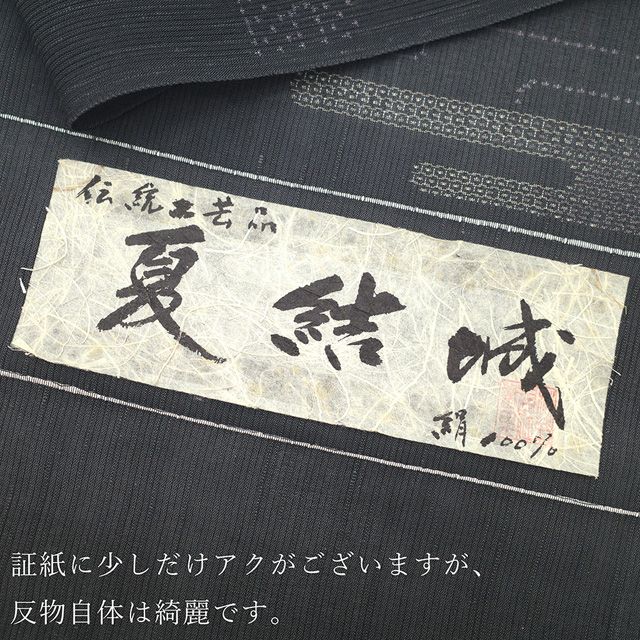 伝統工芸品
夏結城
絹100%
証紙に少しだけアクがございますが、
反物自体は綺麗です。